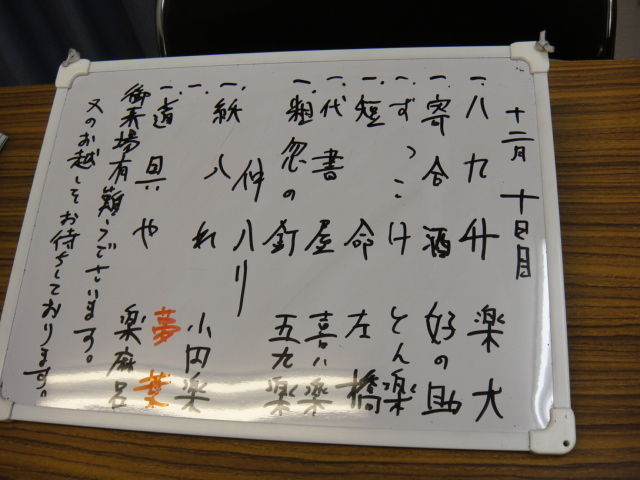 十二月 十日目
一、八九升 楽大
一、寄合酒 好の助
一、ずっこけ とん楽
一、短命 左橋
一、代書屋 喜八楽
一、粗忽の釘 五九楽
仲入リ
一、紙入れ 小円楽
一、夢葉
一、道具や 楽麻呂
御来場有難うございます。
又のお越しをお待ちしております。